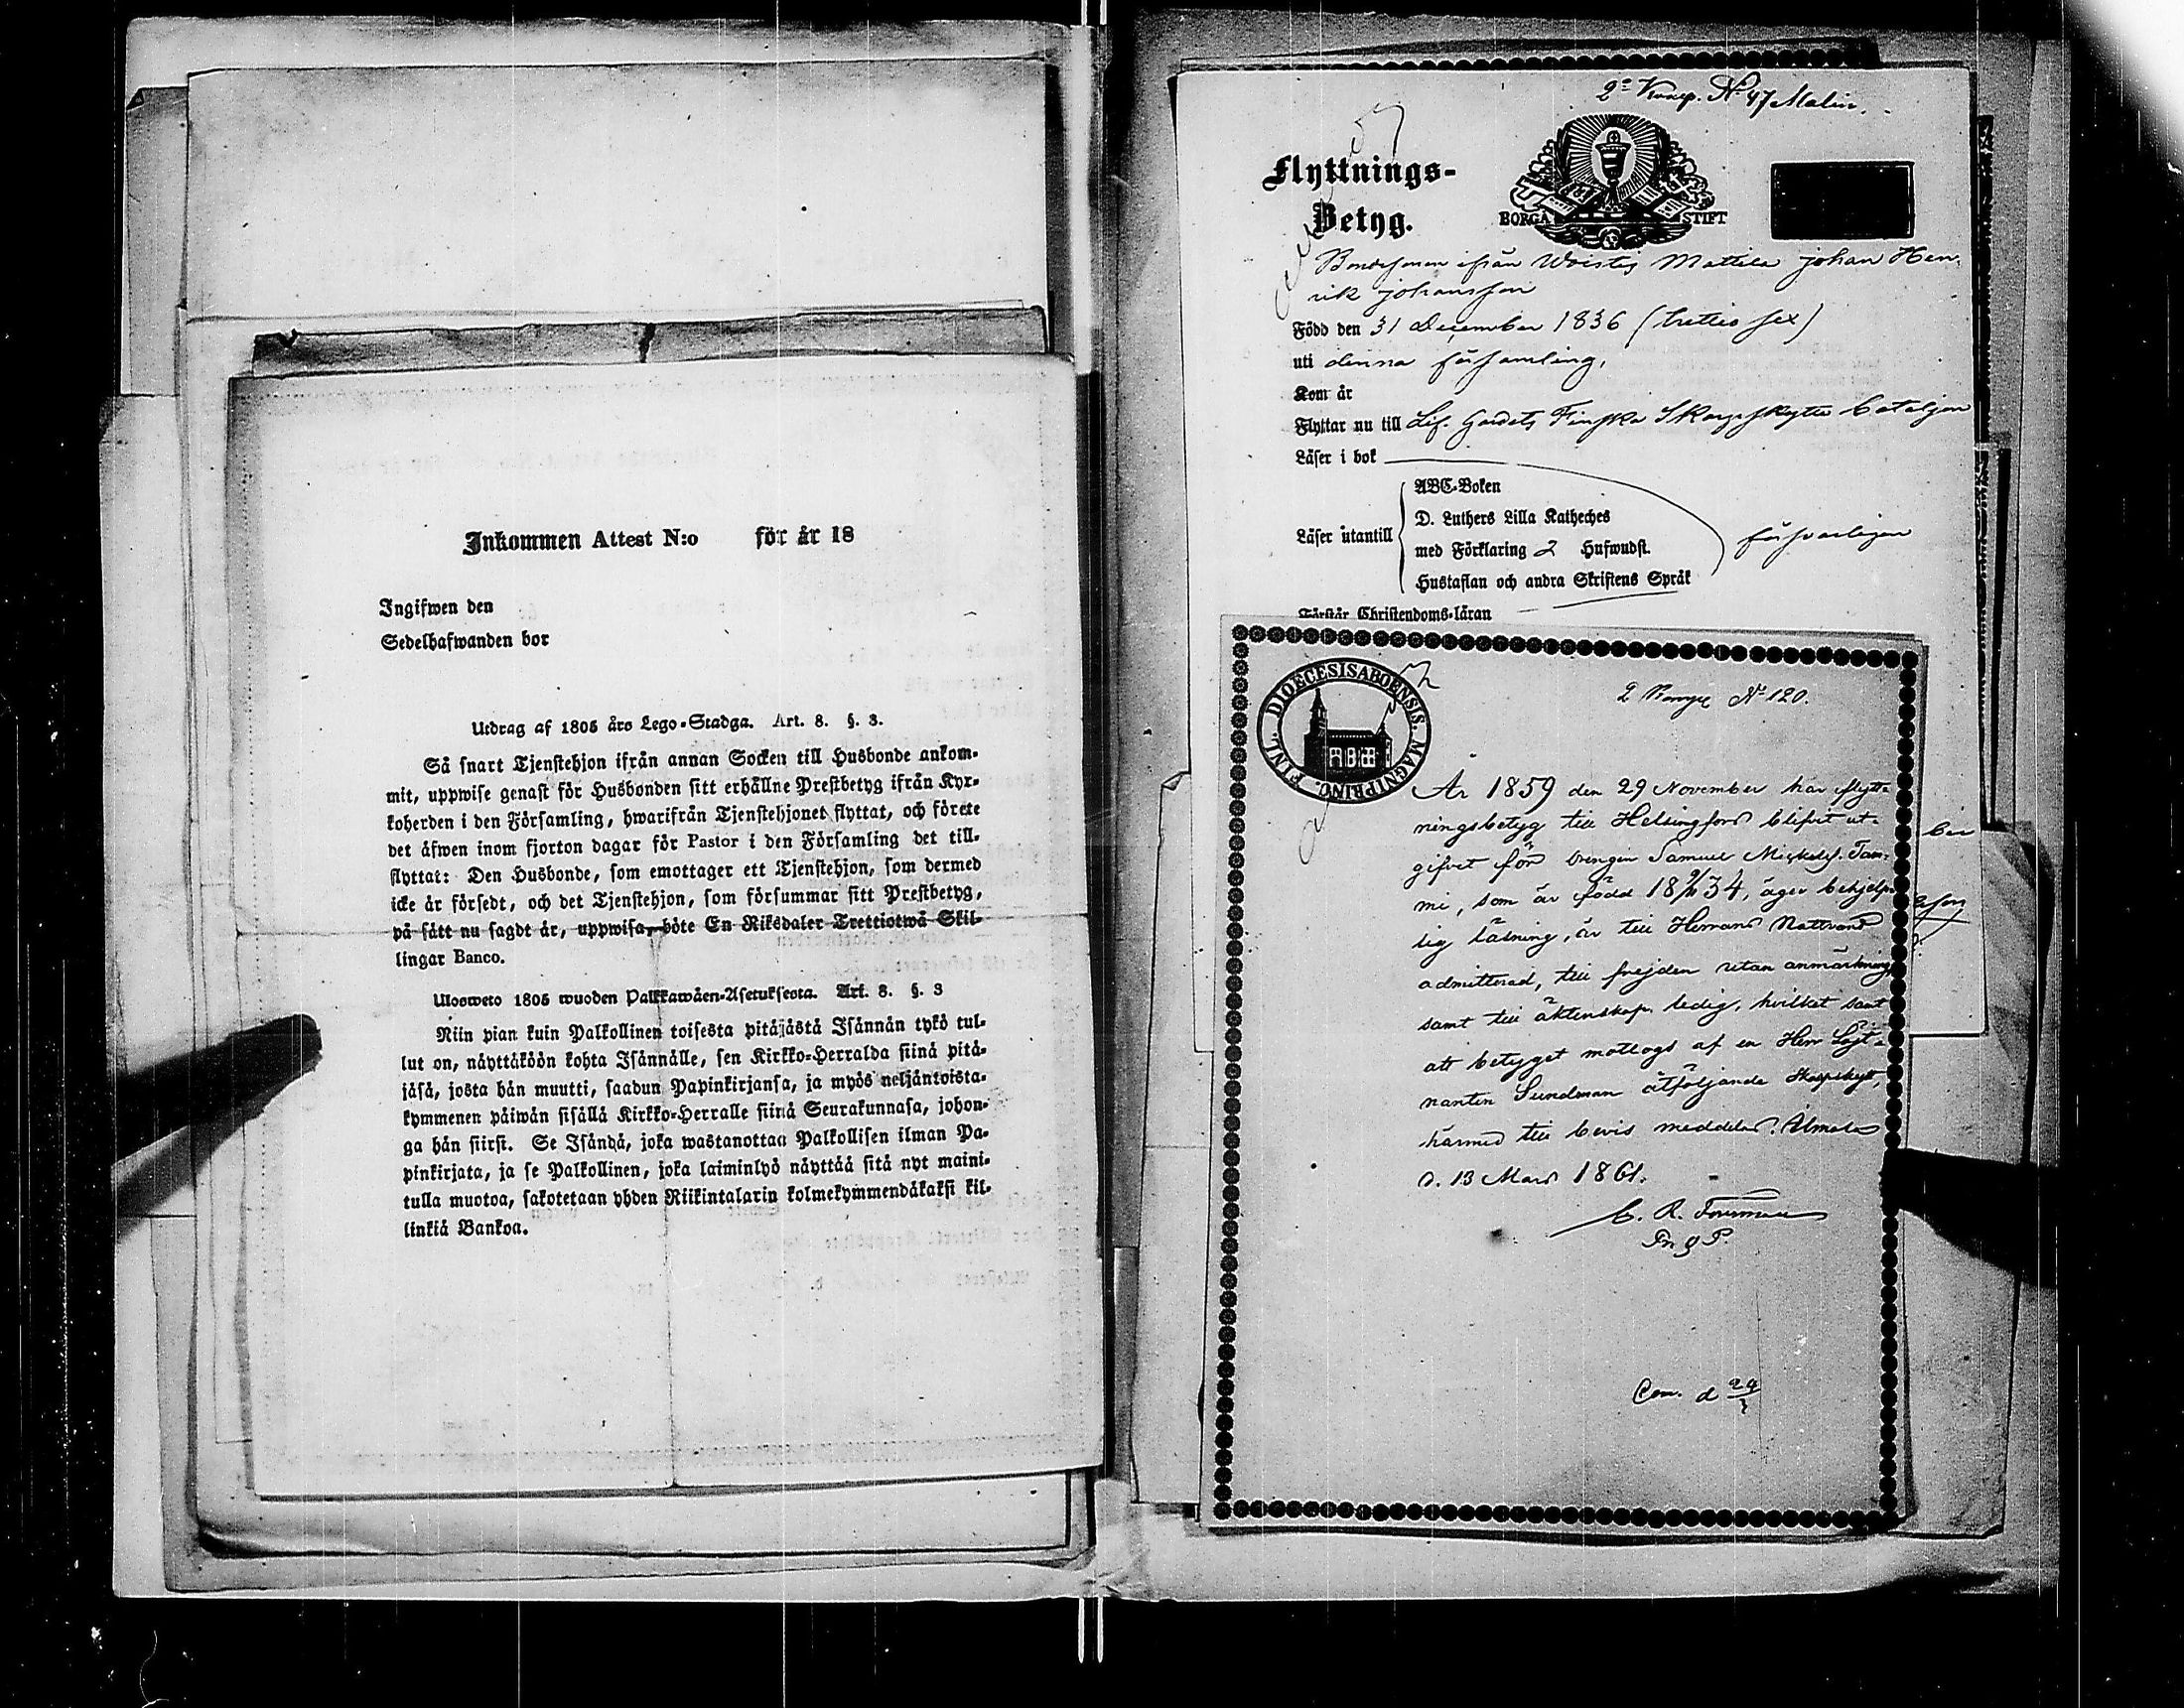 Inkommen Attest N:o för år 18
Ingifwen den
Sedelhafwanden bor
Utdrag af 1805 års Lego-Stadga. Art. 8. §. 3.
Så snart Tjenstehjon ifrån annan Socken till Husbonde ankom-
mit, uppwise genast för Husbonden sitt erhållne Prestbetyg ifrån Kyr-
koherden i den Församling, hwarifrån Tjenstehjonet flyttat, och förete
det äfwen inom fjorton dagar för Pastor i den Församling det till-
flyttat: Den Husbonde, som emottager ett Tjenstehjon, som dermed
icke är försedt, och det Tjenstehjon, som försummar sitt Prestbetyg,
på sätt nu sagdt är, uppwisa, böte En Riksdaler Trettiotwå Skil-
lingar Banco.
Ulosweto 1805 wuoden Palkkawäen-Asetuksesta. Art. 8. §. 3
Niin pian kuin Palkollinen toisesta pitäjästä Isännän tykö tul-
lut on, näyttäköön kohta Isännälle, sen Kirkko-Herralda siinä pitä-
jäsä, josta hän muutti, saadun Papinkirjansa, ja myös neljäntoista-
kymmenen päiwän sisällä Kirkko-Herralle siinä Seurakunnasa, johon-
ga hän siirsi. Se Isändä, joka wastanottaa Palkollisen ilman Pa-
pinkirjata, ja se Palkollinen, joka laiminlyö näyttää sitä nyt maini-
tulla muotoa, sakotetaan yhden Riikintalarin kolmekymmendäkaksi kil-
linkiä Bankoa.
2:a Komp. No 47 Malin.
Flyttnings-
Betyg.
BORGÅ STIFT
Bondesonen ifrån Woistis Mattila Johan Hen-
rik Johansson
Född den 31 December 1836 (trettio sex)
uti denna församling.
Kom år
Flyttar nu till Lif. Gardets Finska Skarpskytte bataljon
Läser i bok
ABC-Boken
D. Luthers Lilla Katheches
Läser utantill med Förklaring 2 Hufwudst. försvarligen
Hustaflan och andra Skriftens Språk
Förstår Christendoms-läran
DIOECESIS ABOENSIS. MAGNI PRINC. FINL.
2 Komp No 120.
År 1859 den 29 November har flytt-
ningsbetyg till Helsingfors blifvit ut-
gifvet för drengen Samuel Michelss. Tam-
mi, som är född 18 34, äger behjelp-
lig läsning, är till Herrans Nattvard
admitterad, till frejden utan anmärkning
samt till äktenskap ledig, hvilket samt
att betyget mottogs af en Herr Löjt-
nanten Sundman åtföljande skarpskytt,
härmed till bevis meddelas. Ulmala
d. 13 Mars 1861.